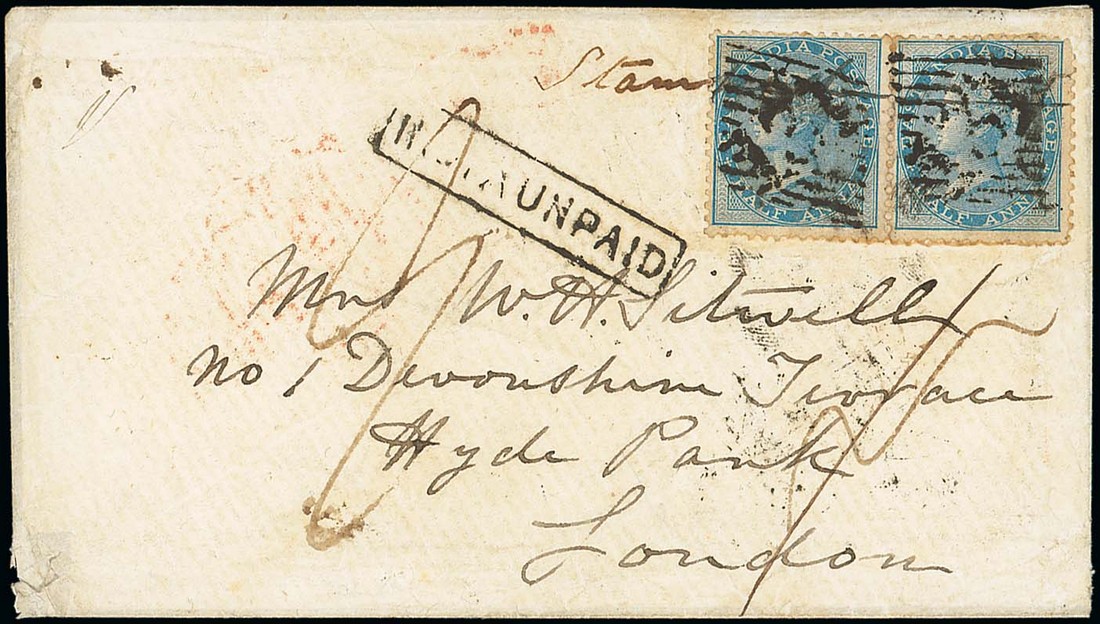 Stam
INDIA UNPAID
INDIA POSTAGE HALF ANNA
INDIA POSTAGE HALF ANNA
Mrs W. H. Sitwell
No 1 Devonshire Terrace
Hyde Park
London